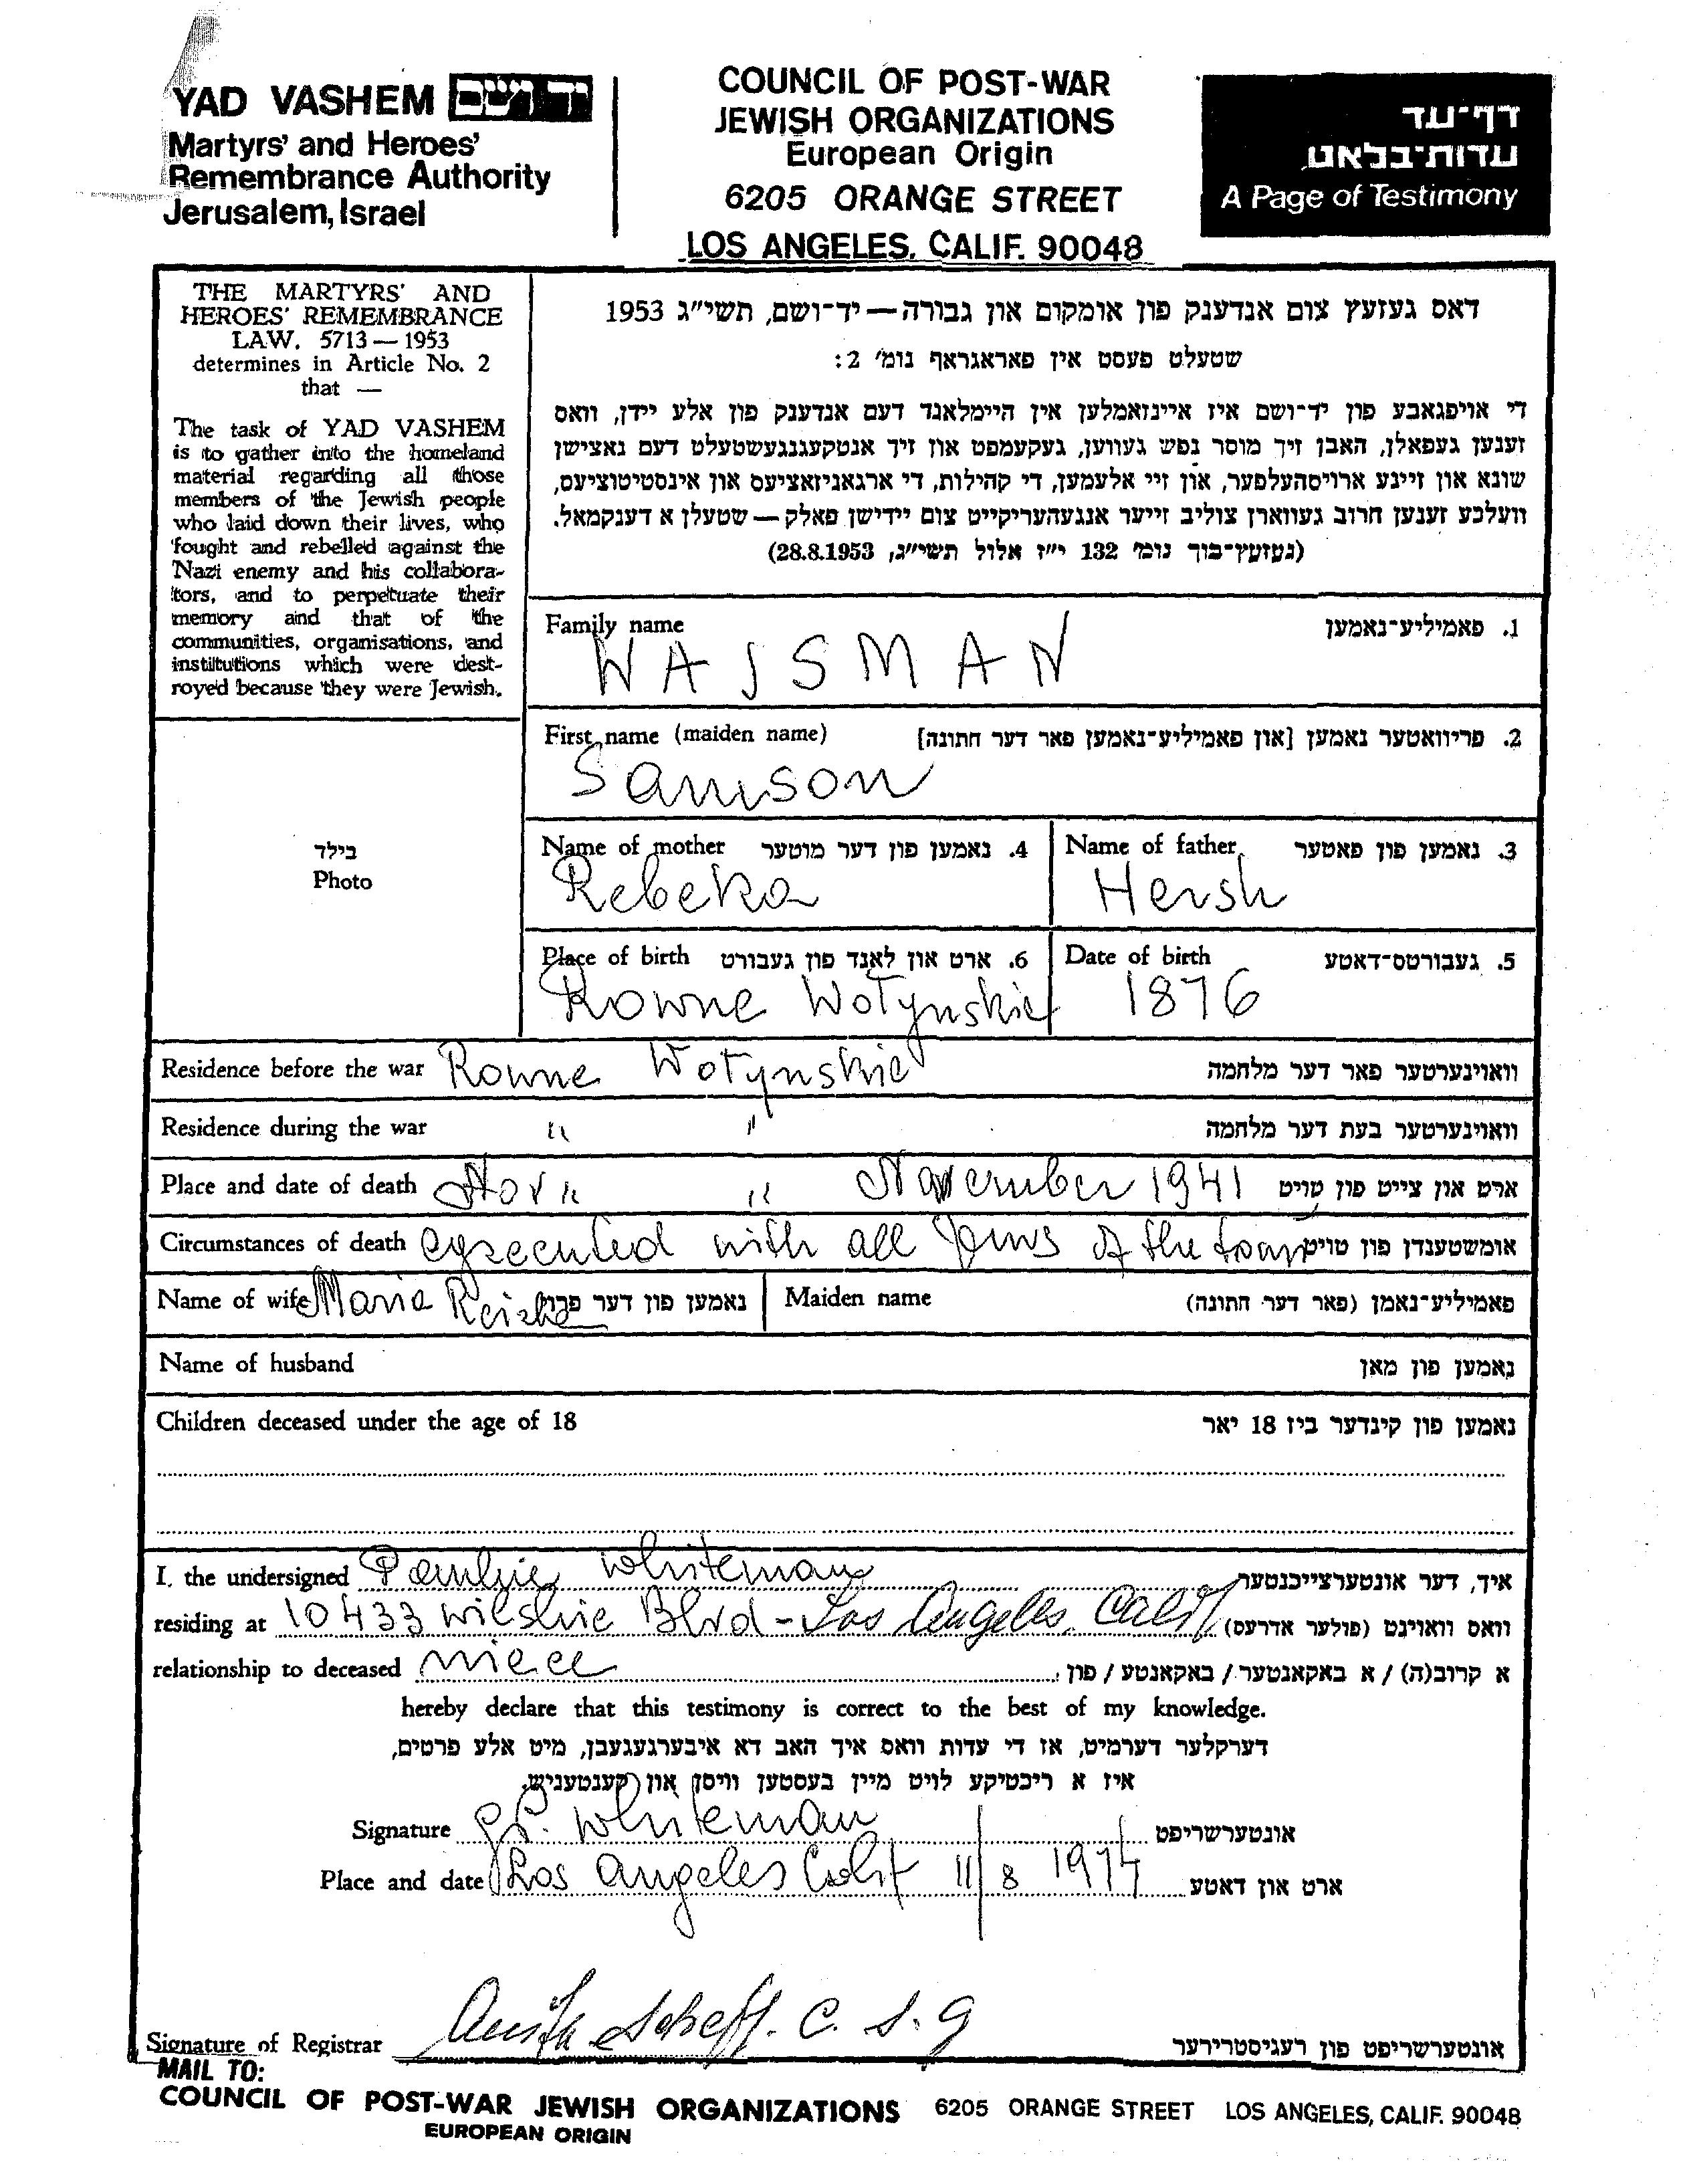 YAD VASHEM יד ושם
Martyrs' and Heroes'
Remembrance Authority
Jerusalem, Israel
COUNCIL OF POST-WAR
JEWISH ORGANIZATIONS
European Origin
6205 ORANGE STREET
LOS ANGELES, CALIF. 90048
דף-עד
עדות-בלאט
A Page of Testimony
THE MARTYRS' AND
HEROES' REMEMBRANCE
LAW, 5713 — 1953
determines in Article No. 2
that —
The task of YAD VASHEM
is to gather into the homeland
material regarding all those
members of the Jewish people
who laid down their lives, who
fought and rebelled against the
Nazi enemy and his collabora-
tors, and to perpetuate their
memory and that of the
communities, organisations, and
institutions which were dest-
royed because they were Jewish.
דאס געזעץ צום אנדענק פון אומקום און גבורה — יד-ושם, תשי"ג 1953
שטעלט פעסט אין פאראגראף נומ' 2:
די אויפגאבע פון יד-ושם איז איינזאמלען אין היימלאנד דעם אנדענק פון אלע יידן, וואס
זענען געפאלן, האבן זיך מוסר נפש געווען, געקעמפט און זיך אנטקעגנגעשטעלט דעם נאצישן
שונא און זיינע ארויסהעלפער, און זיי אלעמען, די קהילות, די ארגאניזאציעס און אינסטיטוציעס,
וועלכע זענען חרוב געווארן צוליב זייער אנגעהעריקייט צום יידישן פאלק — שטעלן א דענקמאל.
(געזעץ-בוך נומ' 132 י"ז אלול תשי"ג, 28.8.1953)
Family name 1. פאמיליע-נאמען
WAJSMAN
First name (maiden name) 2. פריוואטער נאמען [און פאמיליע-נאמען פאר דער חתונה]
Samson
בילד
Photo
Name of mother 4. נאמען פון דער מוטער Name of father 3. נאמען פון פאטער
Rebeka Hersh
Place of birth 6. ארט און לאנד פון געבורט Date of birth 5. געבורטס-דאטע
Rowne Wołynskie 1876
Residence before the war Rowne Wołynskie וואוינערטער פאר דער מלחמה
Residence during the war " " וואוינערטער בעת דער מלחמה
Place and date of death " " November 1941 ארט און צייט פון טויט
Circumstances of death executed with all Jews of the town אומשטענדן פון טויט
Name of wife Maria נאמען פון דער פרוי Maiden name פאמיליע-נאמן (פאר דער חתונה)
Name of husband נאמען פון מאן
Children deceased under the age of 18 נאמען פון קינדער ביז 18 יאר
I, the undersigned Whiteman איך, דער אונטערצייכנטער
residing at 10433 Wilshire Blvd - Los Angeles, Calif וואס וואוינט (פולער אדרעס)
relationship to deceased niece א קרוב(ה) / א באקאנטער / באקאנטע / פון
hereby declare that this testimony is correct to the best of my knowledge.
דערקלער דערמיט, אז די עדות וואס איך האב דא איבערגעגעבן, מיט אלע פרטים,
איז א ריכטיקע לויט מיין בעסטען וויסן און קענטעניש.
Signature P. Whiteman אונטערשריפט
Place and date Los Angeles Calif 11/8 1974 ארט און דאטע
Signature of Registrar Anita Scheff. C. S. G אונטערשריפט פון רעגיסטרירער
MAIL TO:
COUNCIL OF POST-WAR JEWISH ORGANIZATIONS 6205 ORANGE STREET LOS ANGELES, CALIF. 90048
EUROPEAN ORIGIN